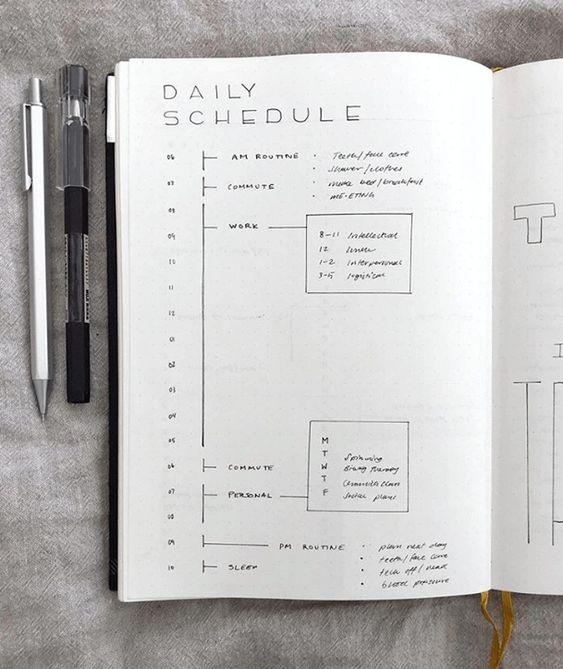 DAILY
SCHEDULE
06 AM ROUTINE • Teeth/face care
• shower/clothes
07 COMMUTE • make bed/breakfast
08
WORK
09 8-11 Intellectual
12 Lunch
10 1-2 Interpersonal
3-5 logistical
11
12
01
02
03
04
05
M
T Spinning
06 COMMUTE W
T
07 PERSONAL F Social plans
08
09 PM ROUTINE • plan next day
• teeth/face care
10 SLEEP • tech off/read
• blood pressure
T
I